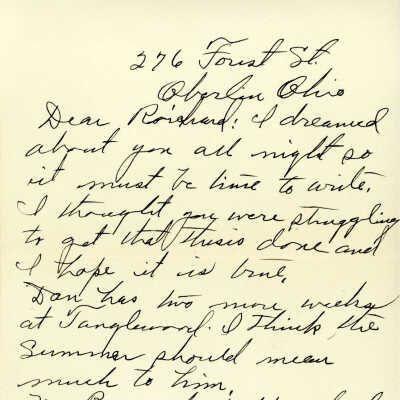 276 Forest St.
Oberlin Ohio
Dear Richard: I dreamed
about you all night so
it must be time to write.
I thought you were struggling
to get that thesis done and
I hope it is true.
Dan has two more weeks
at Tanglewood. I think the
Summer should mean
much to him,